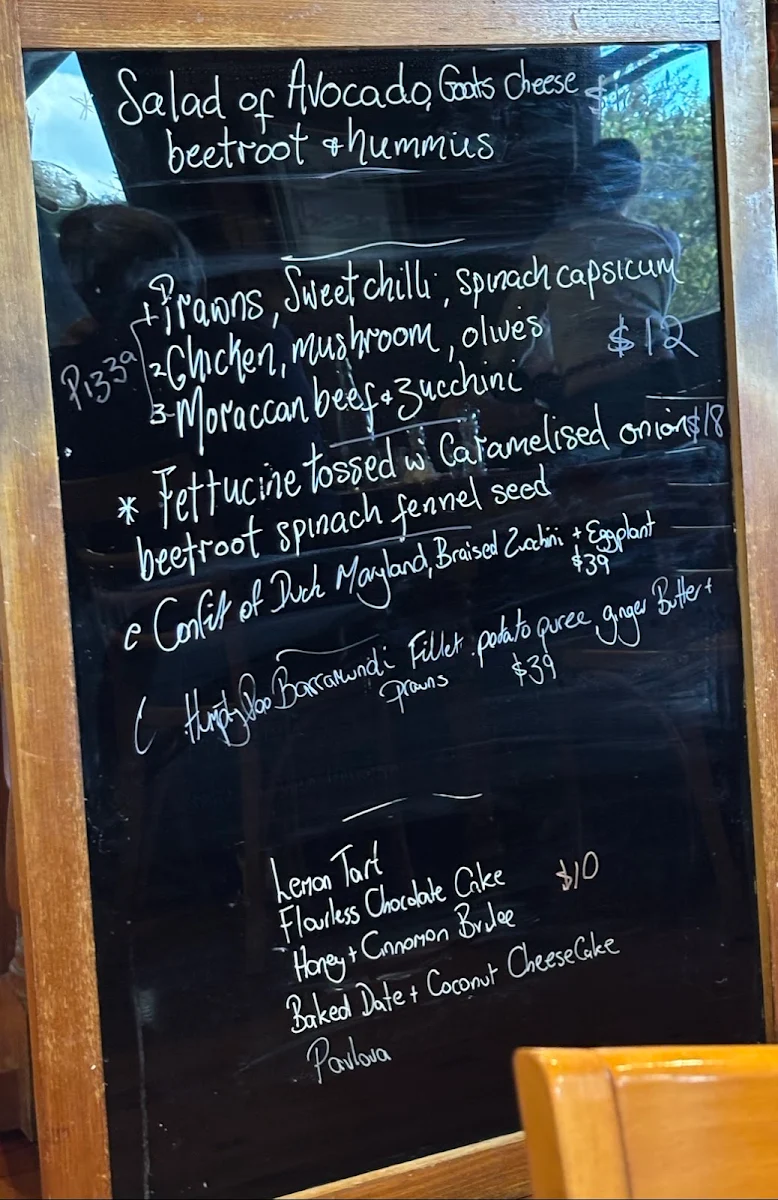 * Salad of Avocado, Goats cheese $
beetroot & hummus
1 Prawns, Sweet chilli, spinach capsicum
Pizza 2 Chicken, mushroom, olives $12
3 Moraccan beef & zucchini
* Fettucine tossed w Caramelised onion $18
beetroot spinach fennel seed
e Confit of Duck Maryland, Braised Zucchini + Eggplant
$39
( Humpty Doo Barramundi Fillet . potato puree, ginger Butter +
prawns $39
Lemon Tart
Flourless Chocolate Cake $10
Honey + Cinnamon Brulee
Baked Date + Coconut CheeseCake
Pavlova